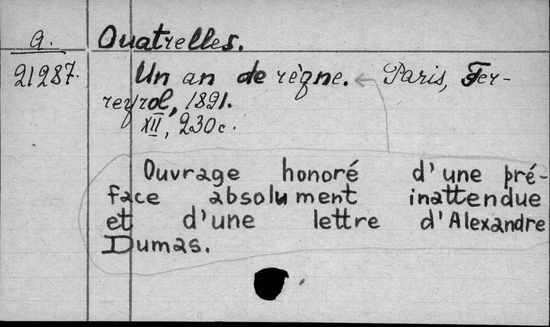 a.
21287.
Quatrelles.
Un an de règne. Paris, Fer-
reyrol, 1891.
XII, 230 c.
Ouvrage honoré d'une pré-
face absolument inattendue
et d'une lettre d'Alexandre
Dumas.